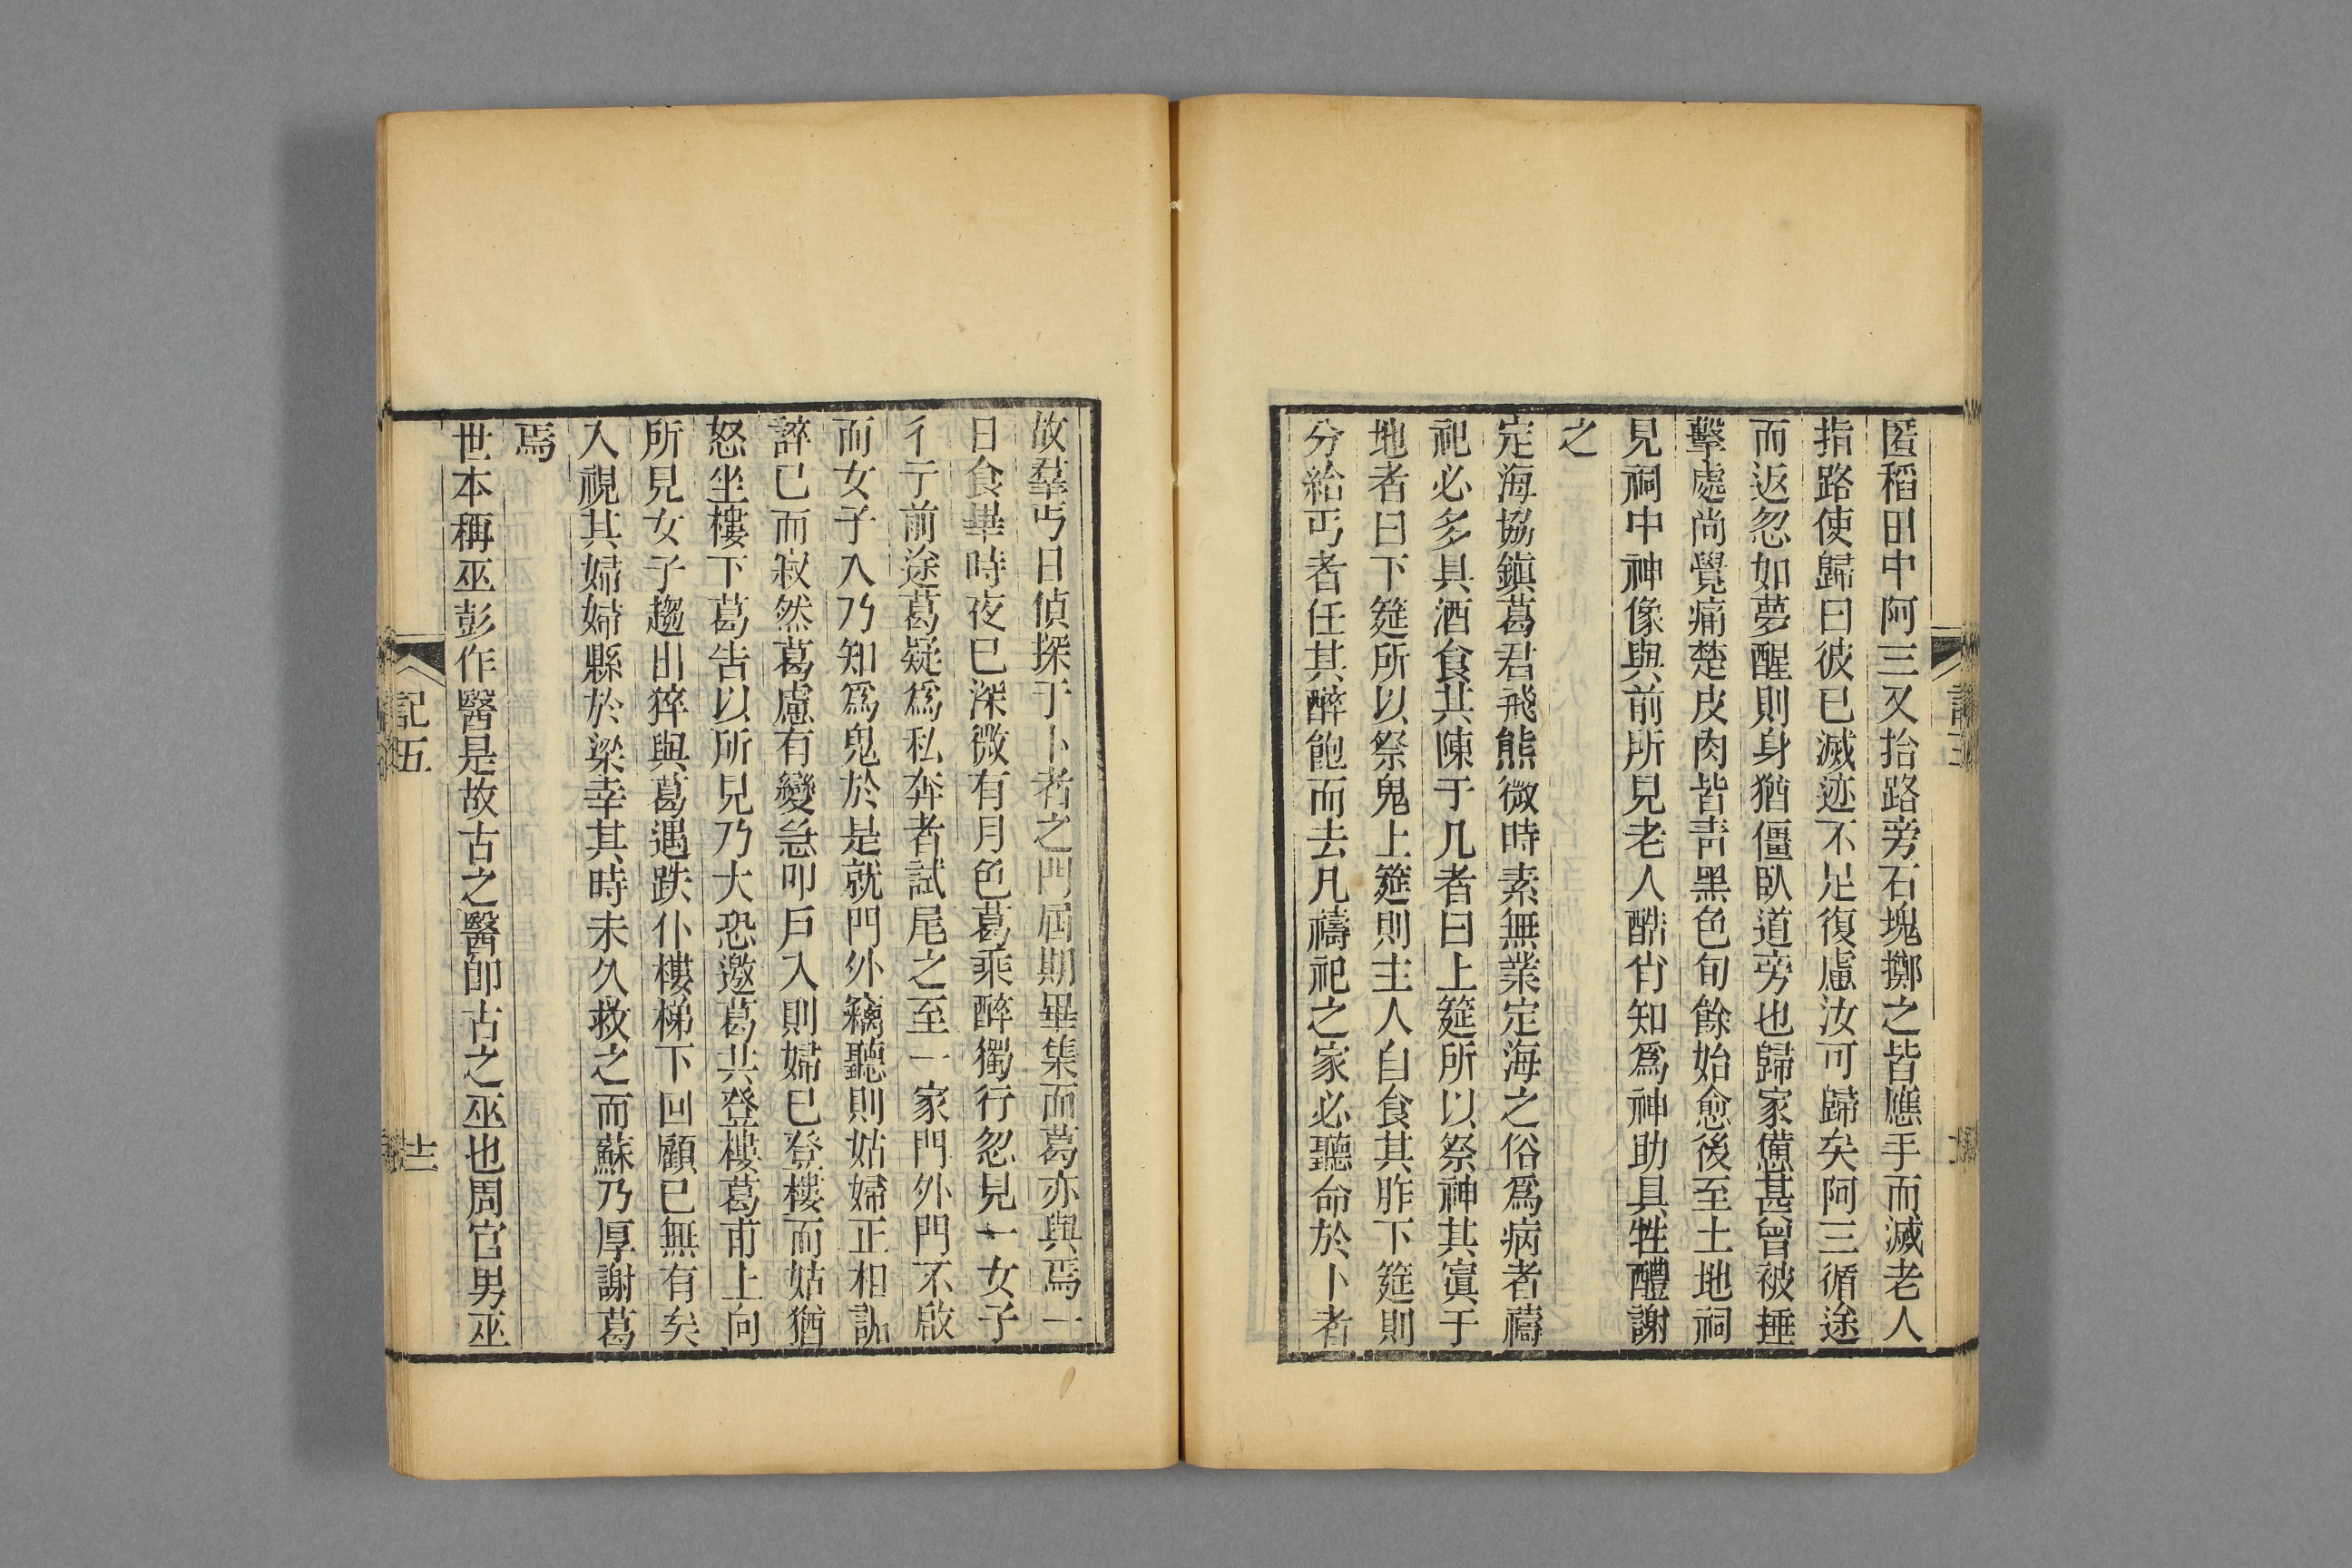 匿稻田中阿三又拾路旁石塊擲之皆應手而滅老人
指路使歸曰彼已滅迹不足復慮汝可歸矣阿三循途
而返忽如夢醒則身猶僵臥道旁也歸家憊甚曾被捶
擊處尚覺痛楚皮肉皆青黑色旬餘始愈後至土地祠
見祠中神像與前所見老人酷肖知爲神助具牲醴謝
之
定海協鎭葛君飛熊微時素無業定海之俗爲病者禱
祀必多具酒食其陳于几者曰上筵所以祭神其寘于
地者曰下筵所以祭鬼上筵則主人自食其胙下筵則
分給丐者任其醉飽而去凡禱祀之家必聽命於卜者
故羣丐日偵探于卜者之門屆期畢集而葛亦與焉一
日食畢時夜已深微有月色葛乘醉獨行忽見一女子
彳亍前途葛疑爲私奔者試尾之至一家門外門不啟
而女子入乃知爲鬼於是就門外竊聽則姑婦正相訕
誶已而寂然葛慮有變急叩戶入則婦已登樓而姑猶
怒坐樓下葛告以所見乃大恐邀葛共登樓葛甫上向
所見女子趨出猝與葛遇跌仆樓梯下回顧已無有矣
入視其婦婦縣於梁幸其時未久救之而蘇乃厚謝葛
焉
世本稱巫彭作醫是故古之醫卽古之巫也周官男巫
記五
十二